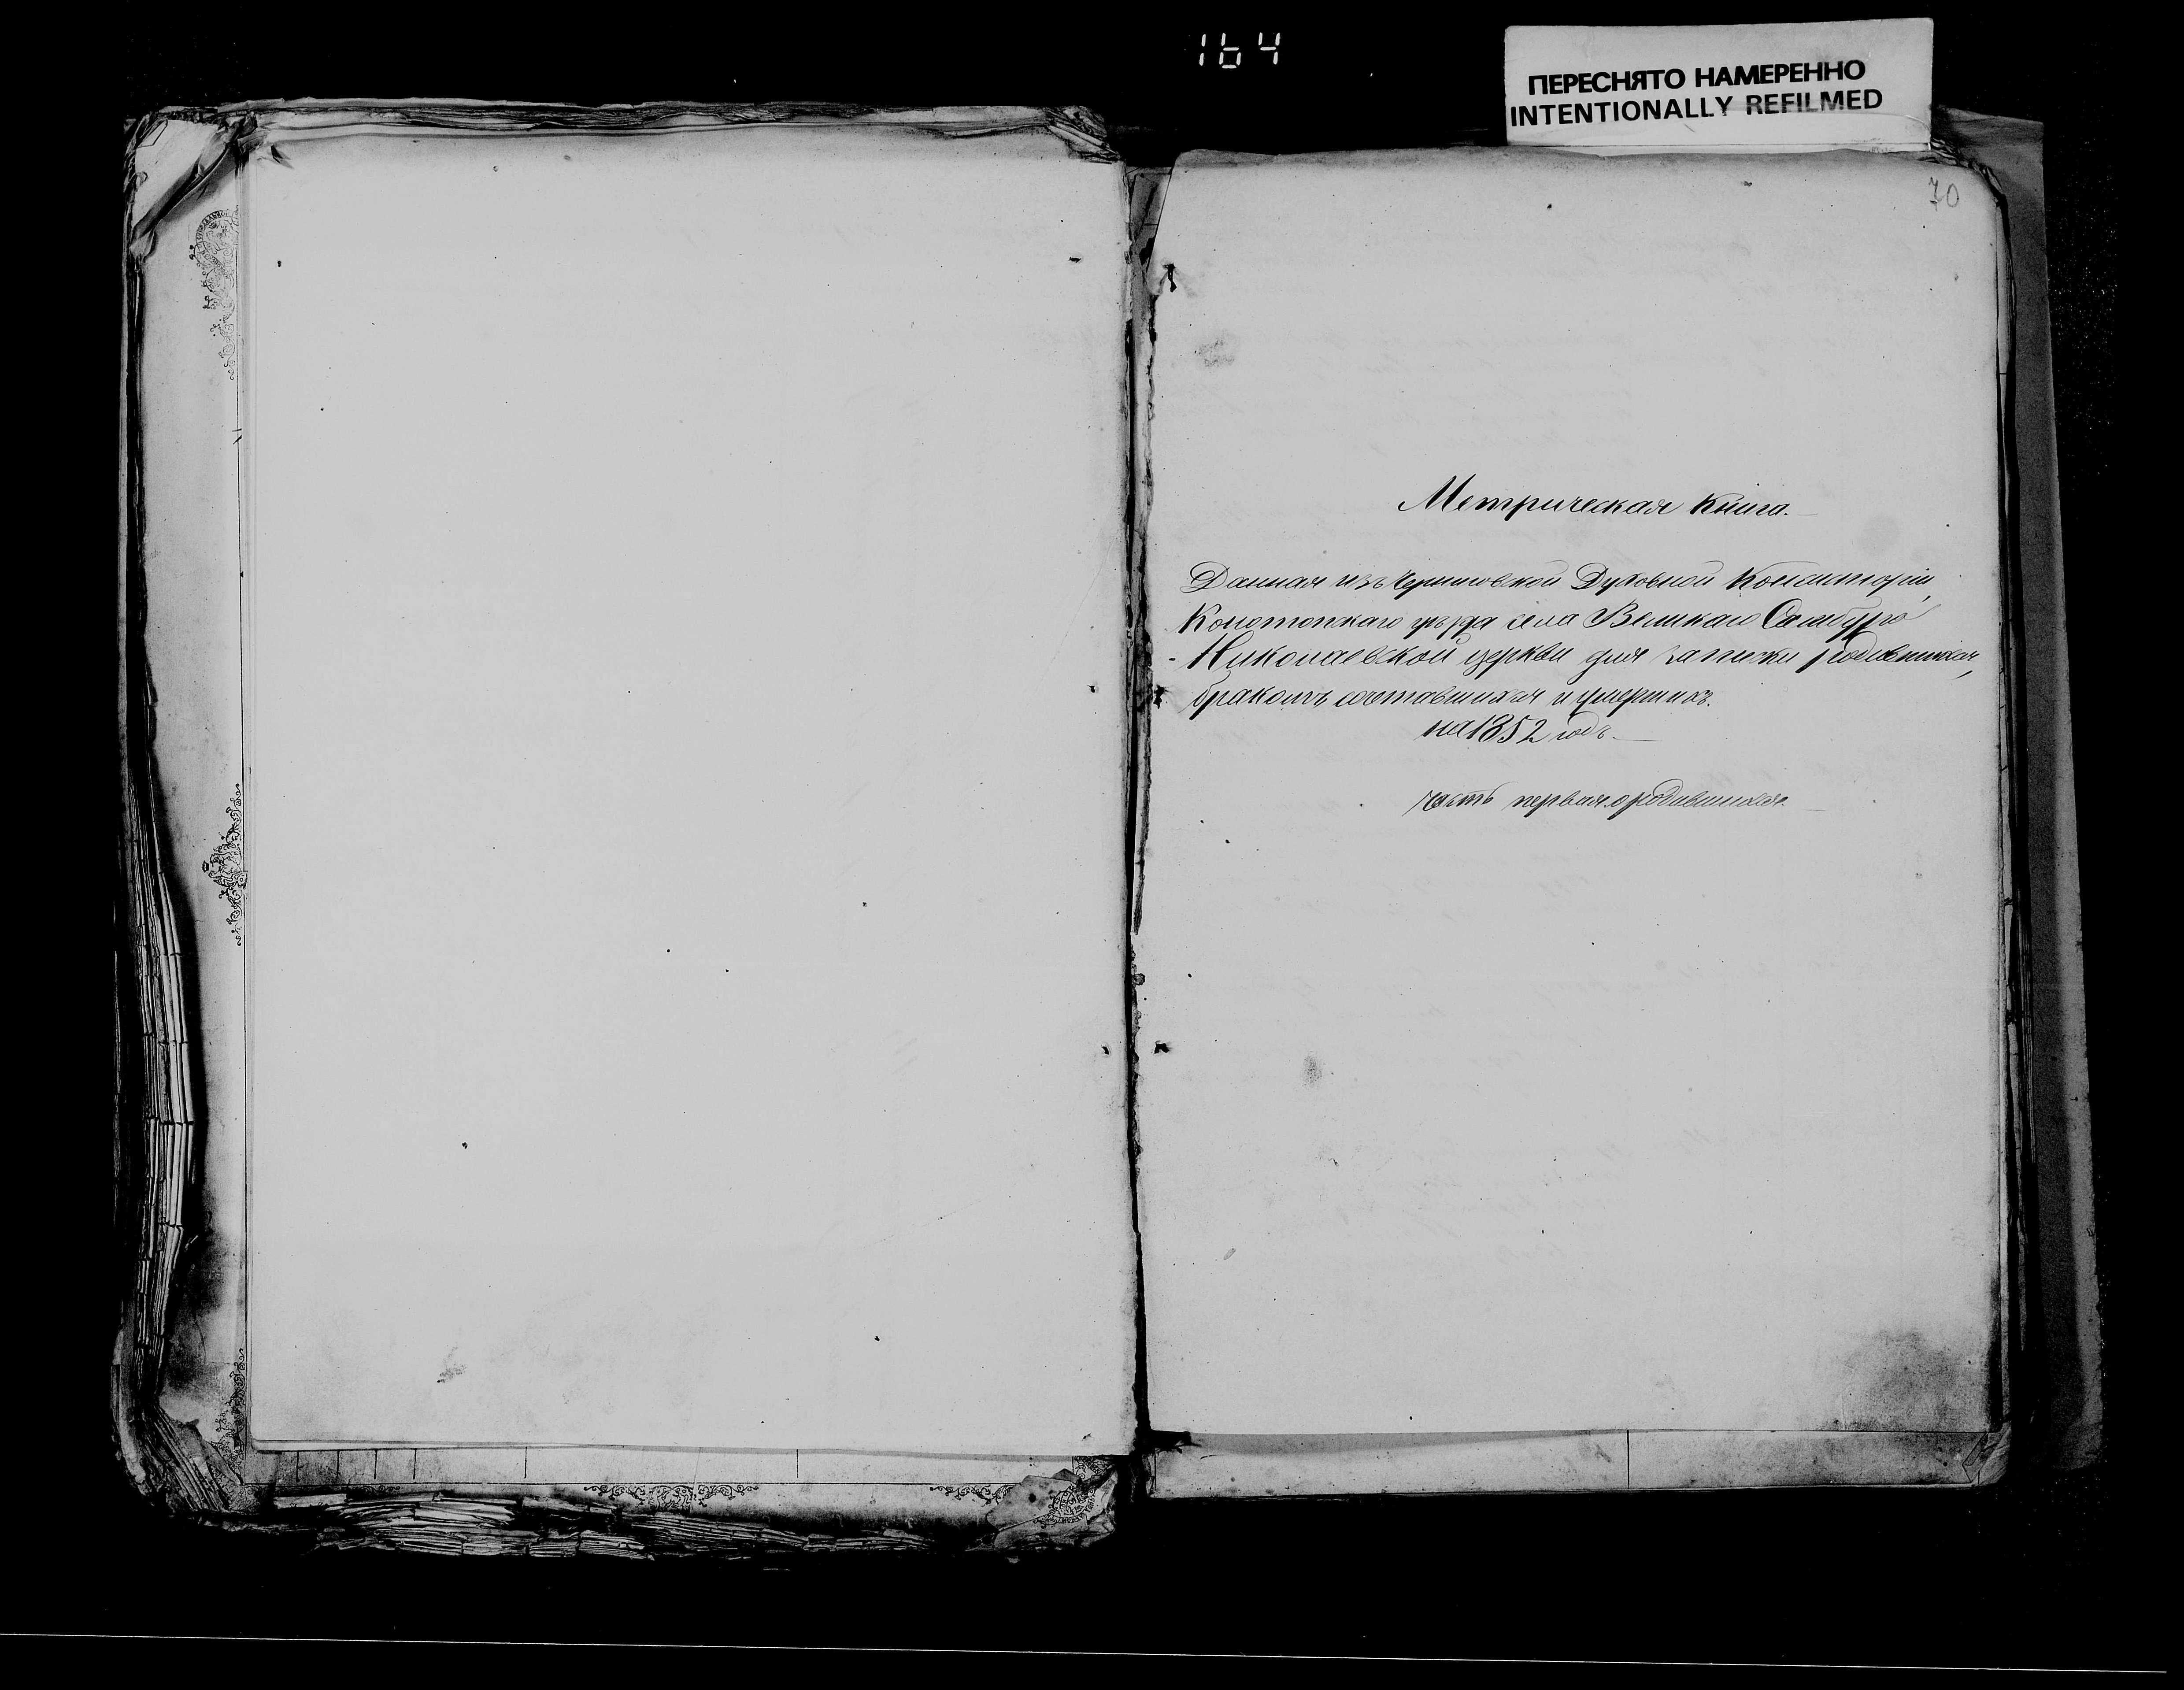 164
ПЕРЕСНЯТО НАМЕРЕННО
INTENTIONALLY REFILMED
70
Метрическая Книга.
Данная изъ Черниговской Духовной Консисторіи,
Конотопскаго уѣзда села Великаго Самбура
Николаевской церкви для записки родившихся,
бракомъ сочетавшихся и умершихъ.
на 1852 годъ.
Часть первая о родившихся.